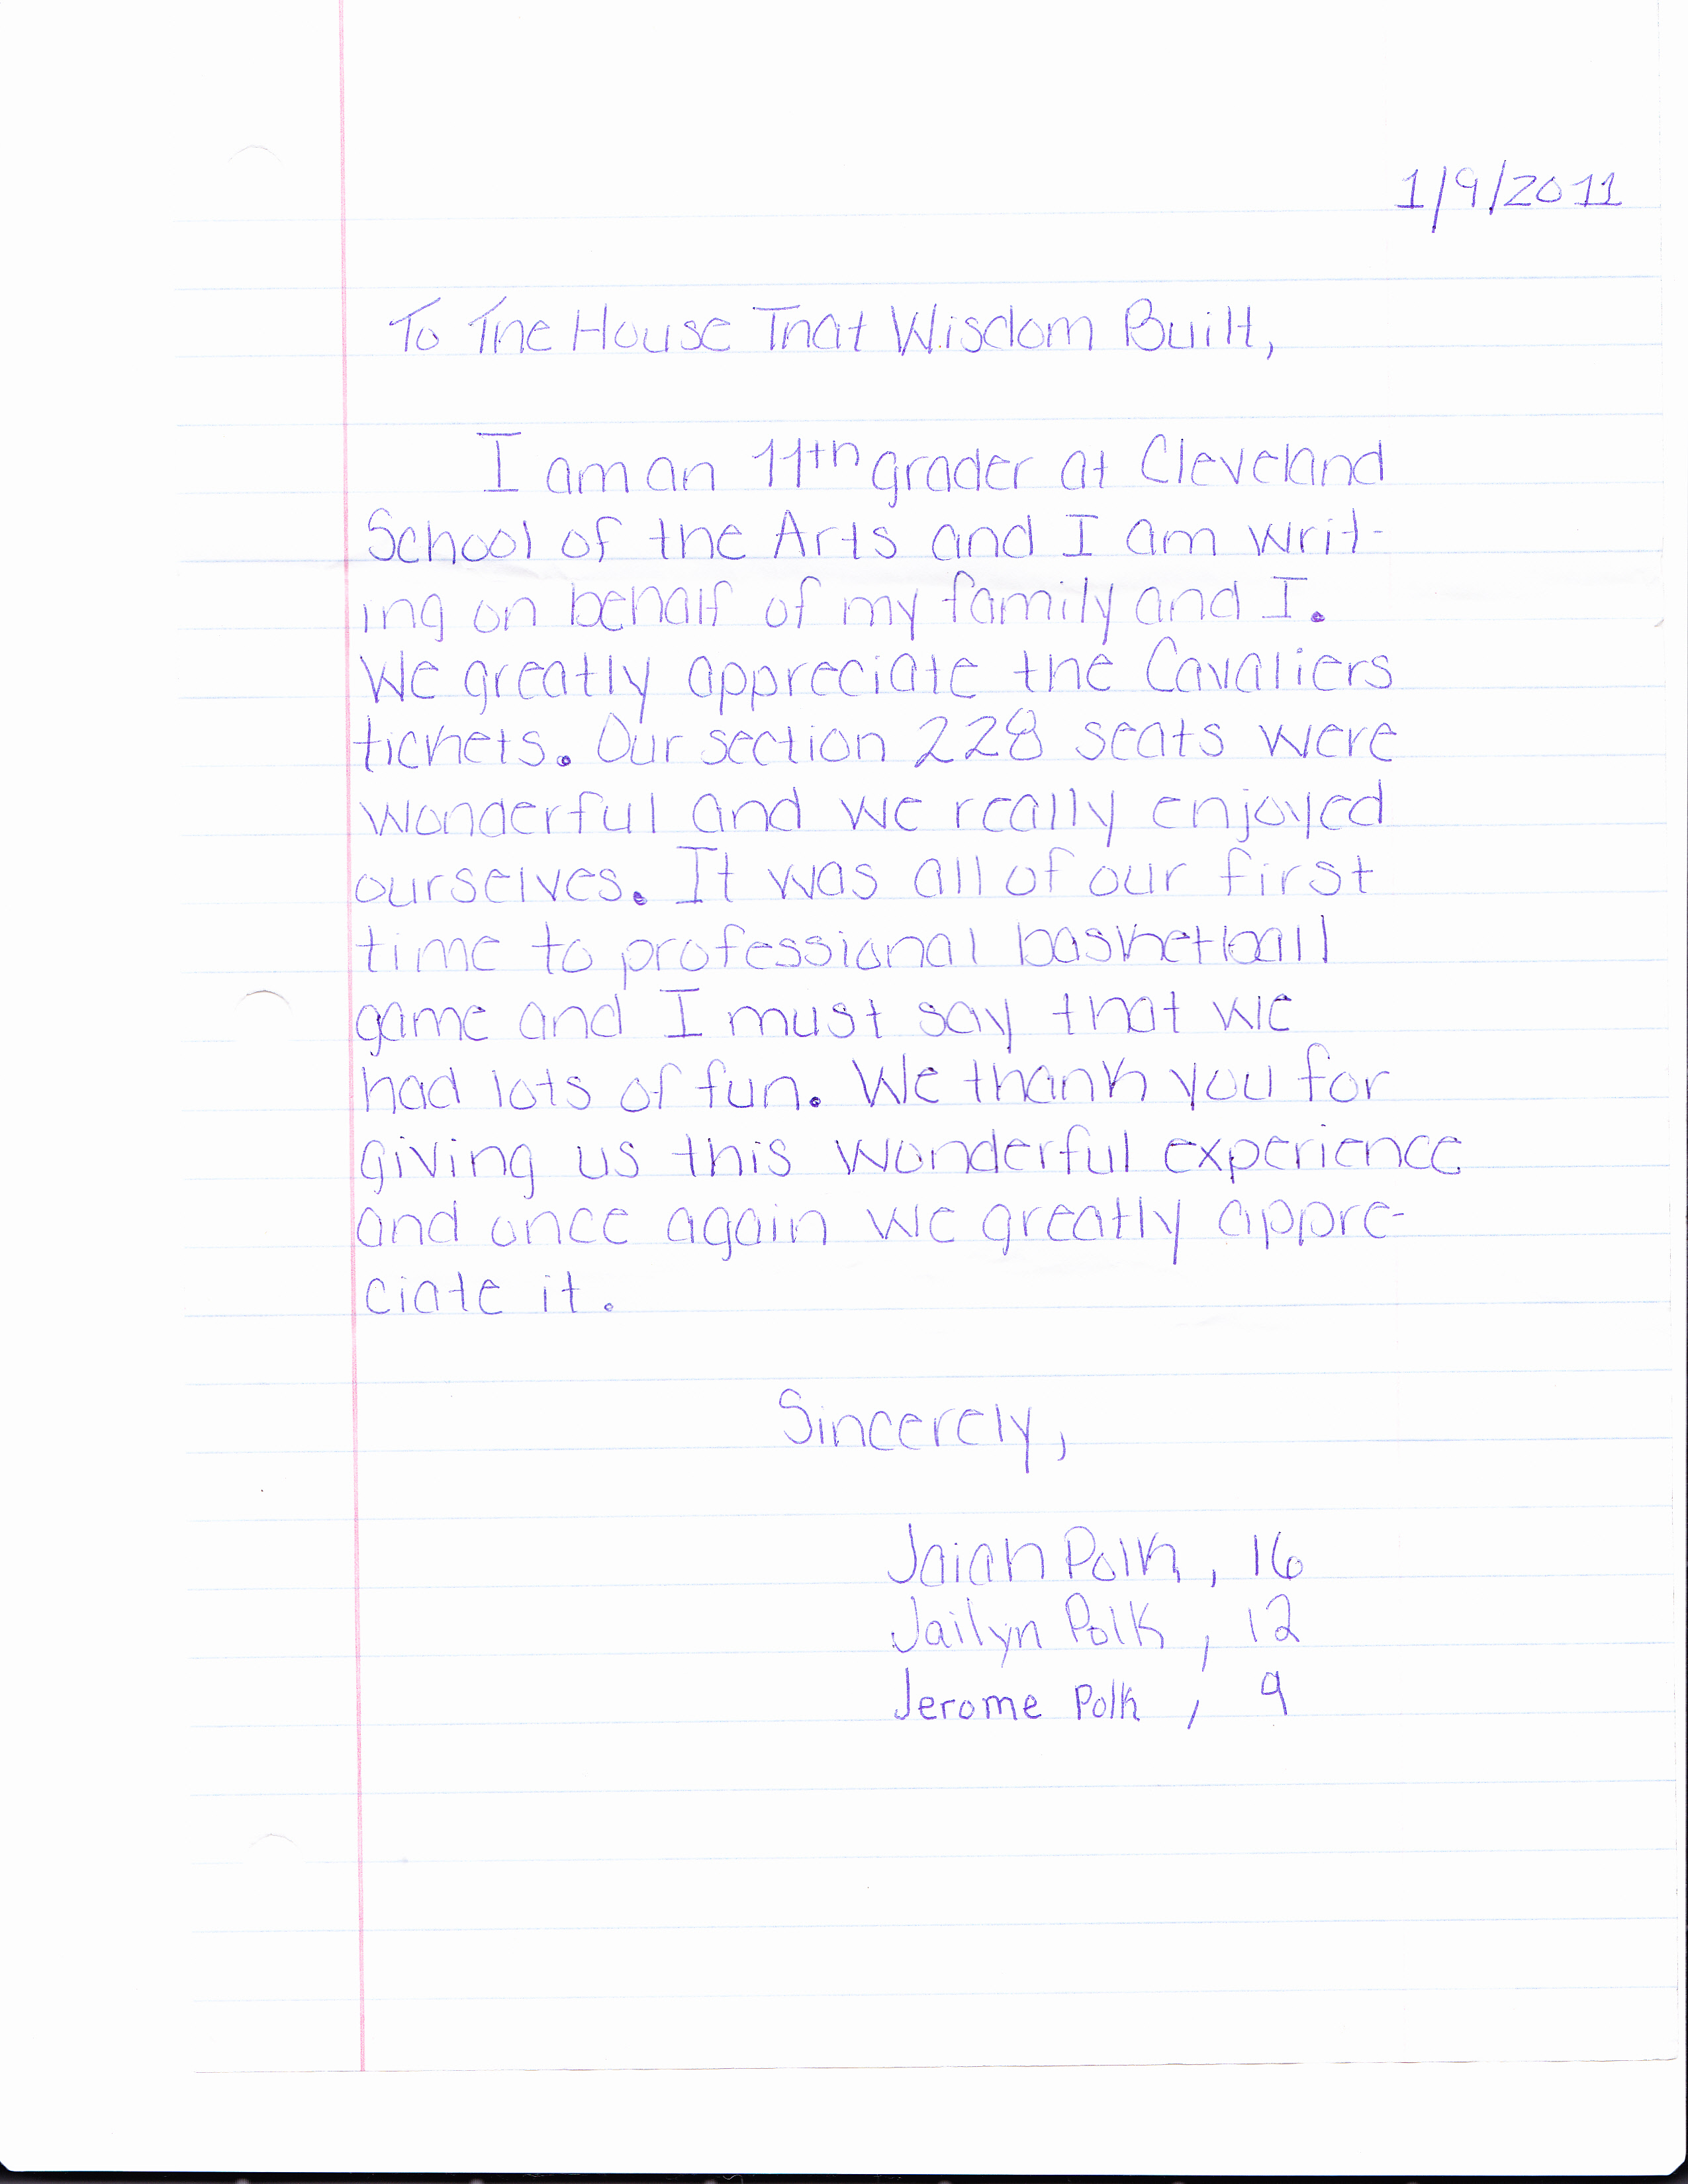 1/9/2011
To The House That Wisdom Built,
I am an 11th grader at Cleveland
School of the Arts and I am writ-
ing on behalf of my family and I.
We greatly appreciate the Cavaliers
tickets. Our section 228 seats were
wonderful and we really enjoyed
ourselves. It was all of our first
time to professional basketball
game and I must say that we
had lots of fun. We thank you for
giving us this wonderful experience
and once again we greatly appre-
ciate it.
Sincerely,
Jaiah Polk, 16
Jailyn Polk, 12
Jerome Polk, 9